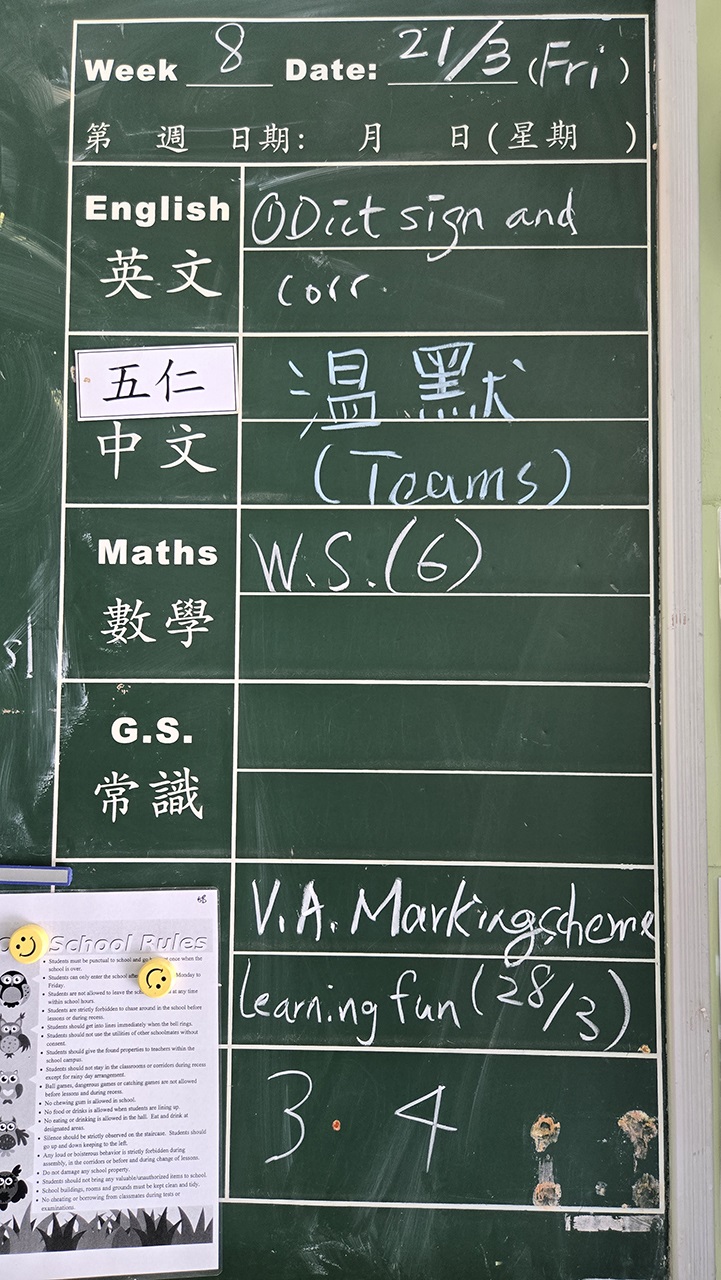 Week 8 Date: 21/3 (Fri)
第 週 日期: 月 日(星期 )
English
英文
①Dict sign and
corr.
五仁
中文
溫默
(Teams)
Maths
數學
W.S.(6)
G.S.
常識
V.A. Marking scheme
learning fun (28/3)
3. 4
School Rules
• Students must be punctual to school and go once when the
school is over.
• Students can only enter the school Monday to
Friday.
• Students are not allowed to leave the at any time
within school hours.
• Students are strictly forbidden to chase around in the school before
lessons or during recess.
• Students should get into lines immediately when the bell rings.
• Students should not use the utilities of other schoolmates without
consent.
• Students should give the found properties to teachers within the
school campus.
• Students should not stay in the classrooms or corridors during recess
except for rainy day arrangement.
• Ball games, dangerous games or catching games are not allowed
before lessons and during recess.
• No chewing gum is allowed in school.
• No food or drinks is allowed when students are lining up.
• No eating or drinking is allowed in the hall. Eat and drink at
designated areas.
• Silence should be strictly observed on the staircase. Students should
go up and down keeping to the left.
• Any loud or boisterous behavior is strictly forbidden during
assembly, in the corridors or before and during change of lessons.
• Do not damage any school property.
• Students should not bring any valuable/unauthorized items to school.
• School buildings, rooms and grounds must be kept clean and tidy.
• No cheating or borrowing from classmates during tests or
examinations.